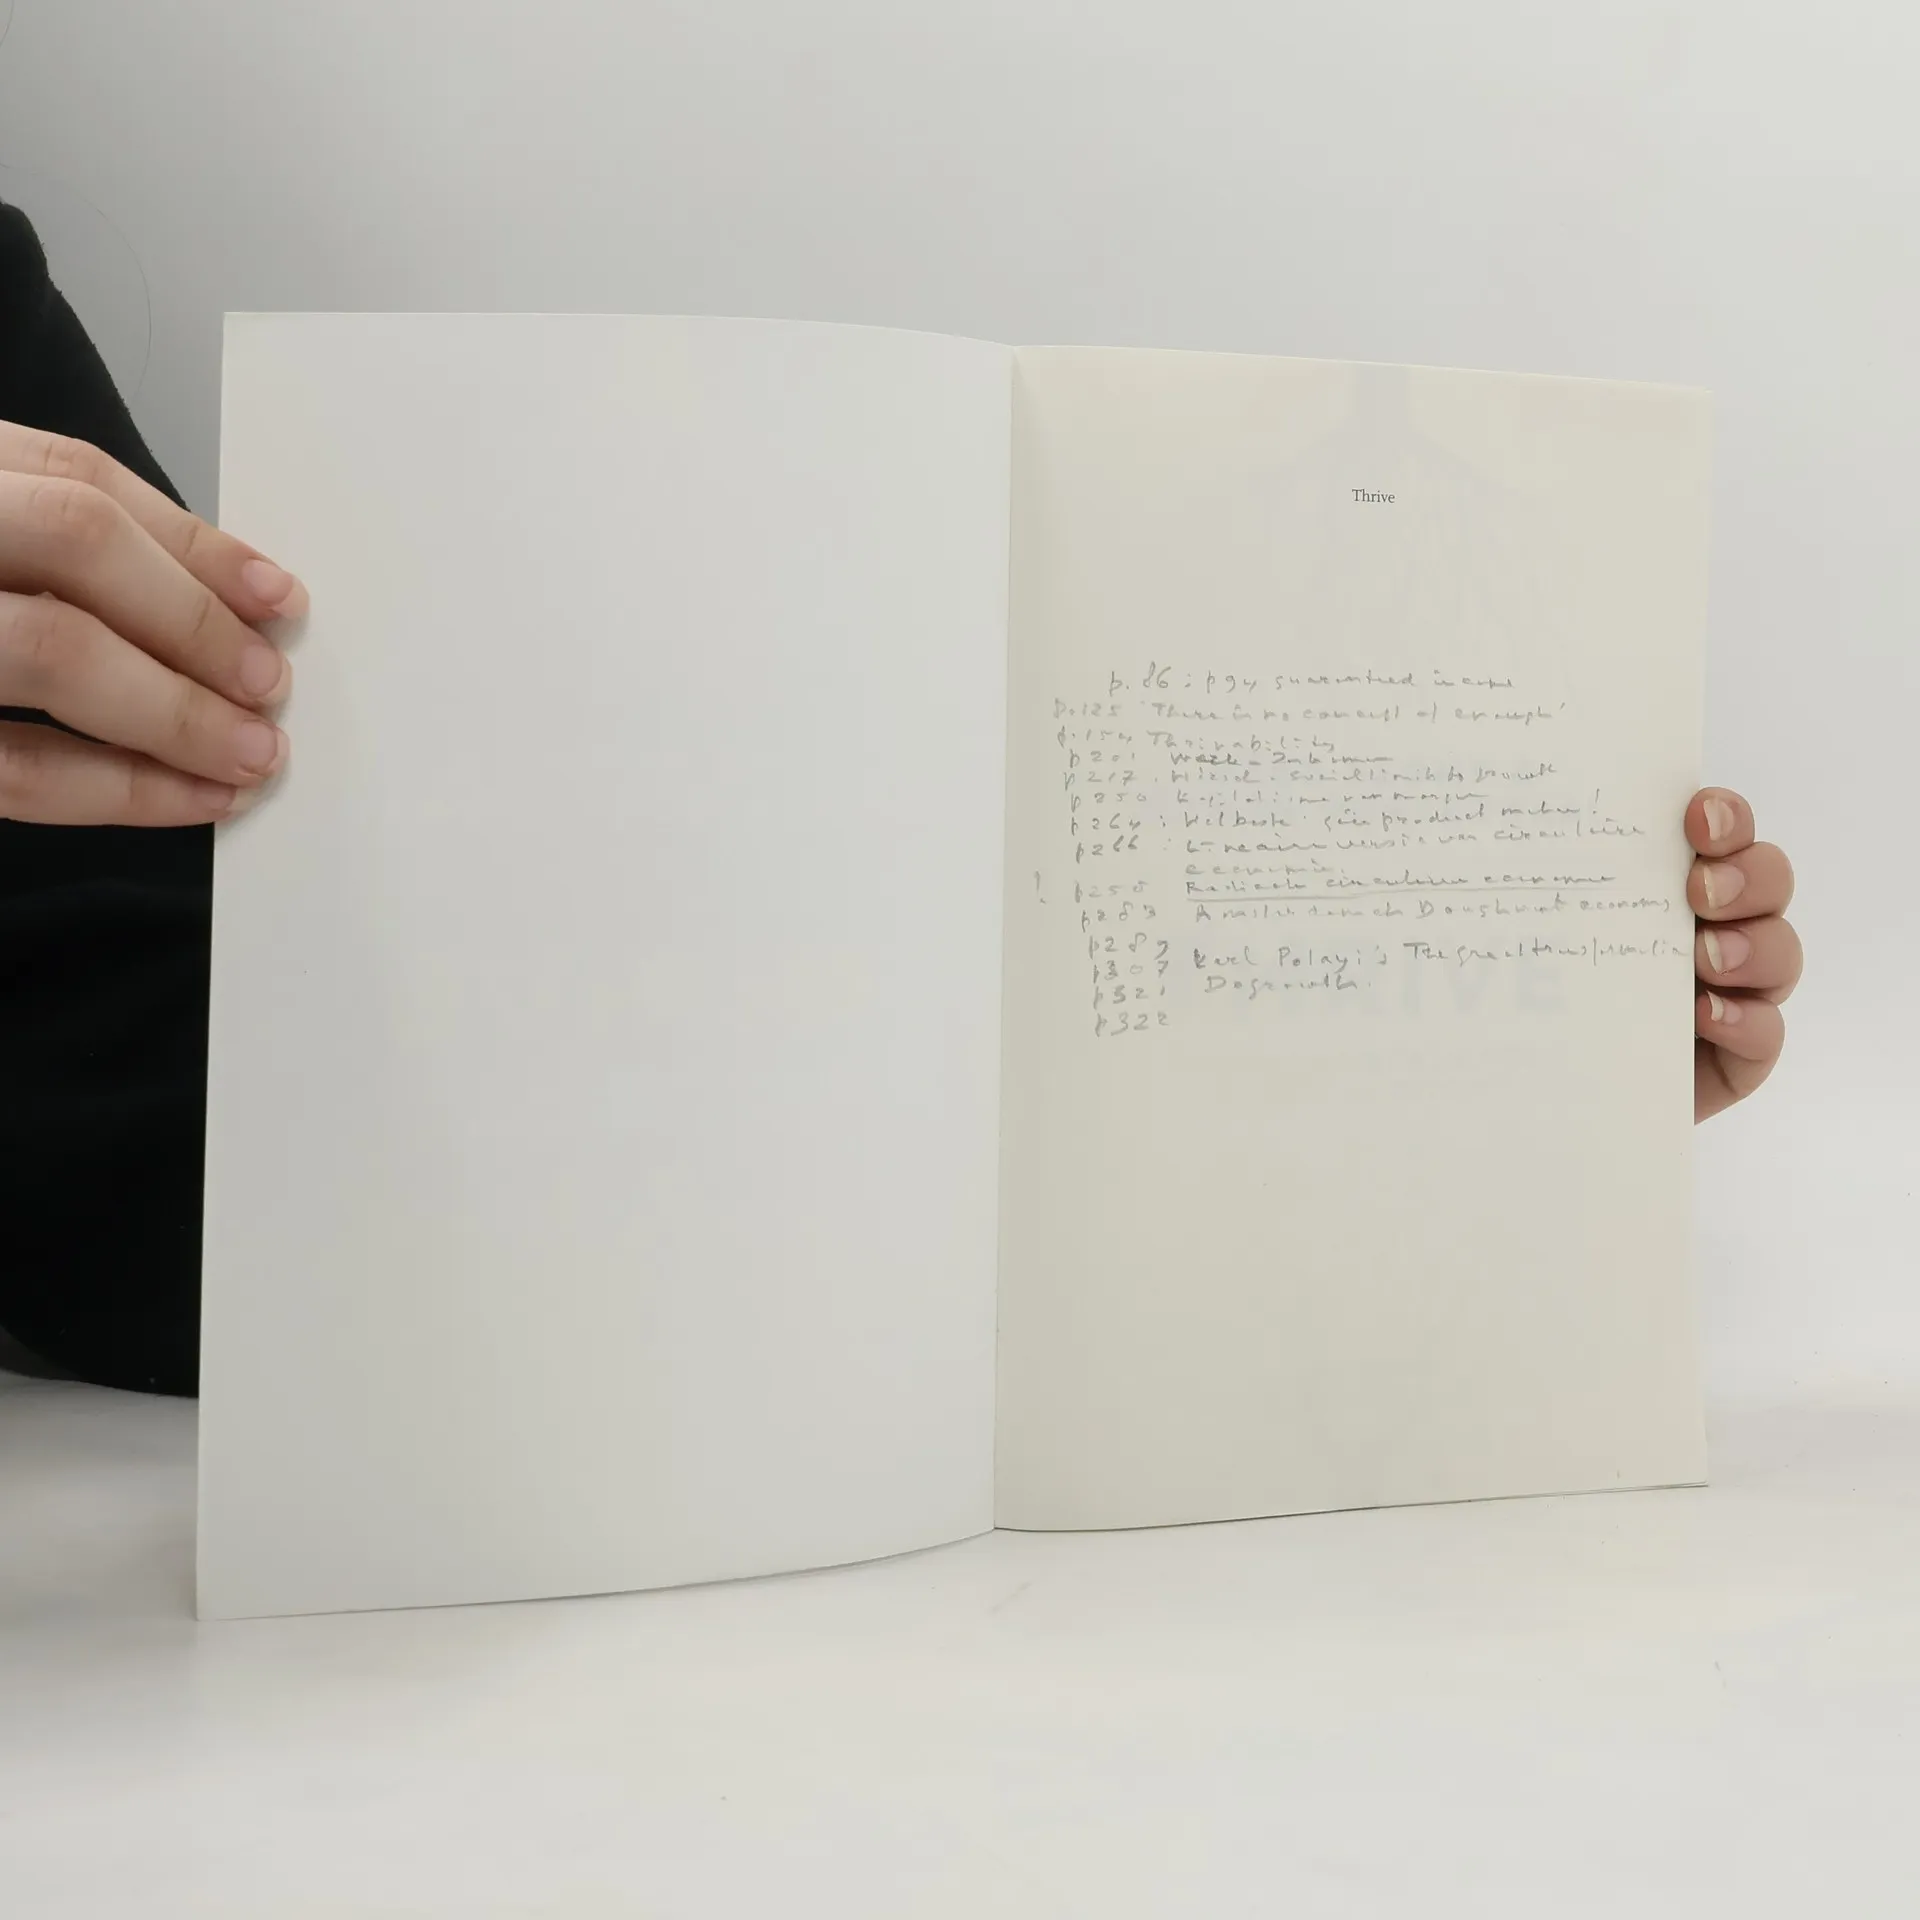 Thrive
p. 86 : p 94 guaranteed income
p. 125 'There is no concept of enough'
p. 154 Thrivability
p 201
p 217 . Hirsch . social limits to growth
p 250 Kapitalisme van morgen
p 264 : product maken!
p 266 : versie van circulaire
economie.
! p 250 Radicale circulaire economie
p 283 Doughnut economy
p 289 Karl Polayi's The great transformation
p 307 Degrowth.
p 321
p 322